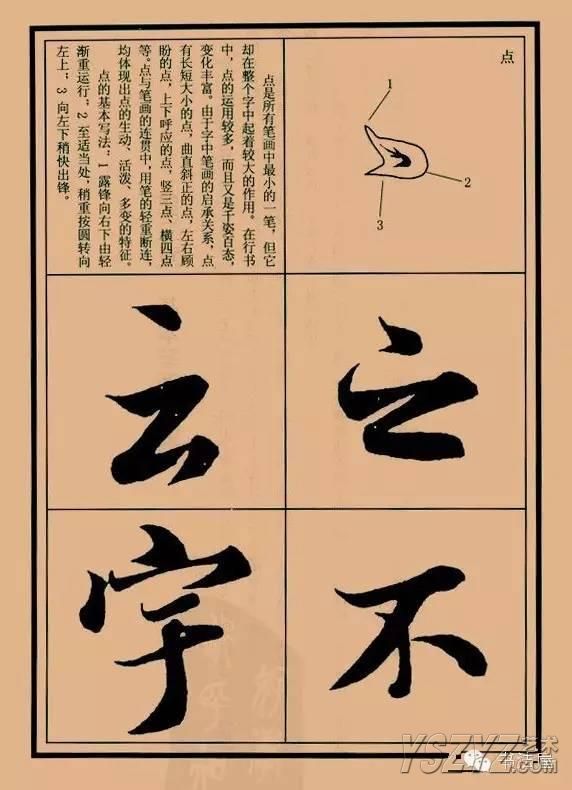 点
1
2
3
点是所有笔画中最小的一笔，但它
却在整个字中起着较大的作用。在行书
中，点的运用较多，而且又是千姿百态，
变化丰富。由于字中笔画的启承关系，点
有长短大小的点，曲直斜正的点，左右顾
盼的点，上下呼应的点，竖三点、横四点
等。点与笔画的连贯中，用笔的轻重断连，
均体现出点的生动、活泼、多变的特征。
点的基本写法：1 露锋向右下由轻
渐重运行；2 至适当处，稍重按圆转向
左上；3 向左下稍快出锋。
之
不
云
宇
YSZYZ艺术
.COM